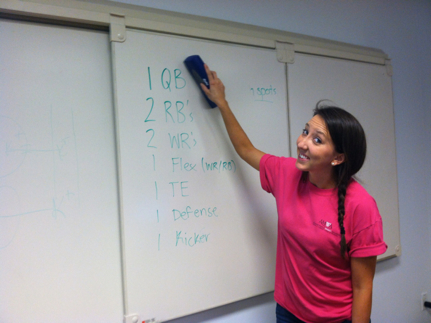 1 QB
2 RB's
2 WR's
1 Flex (WR/RB)
1 TE
1 Defense
1 Kicker